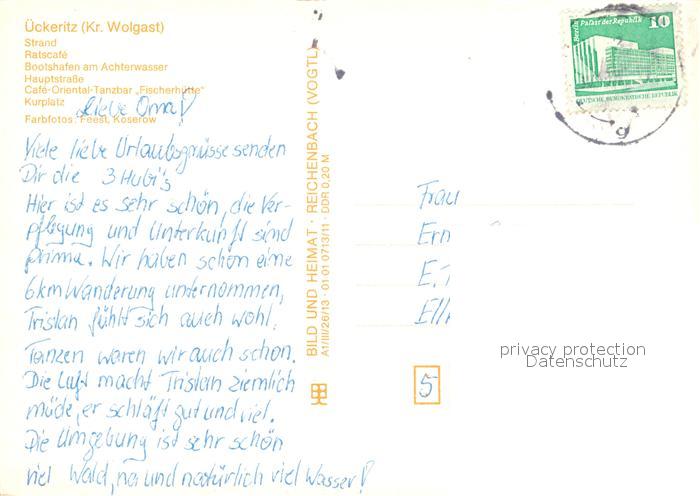 Ückeritz (Kr. Wolgast)
Strand
Ratscafé
Bootshafen am Achterwasser
Hauptstraße
Café-Oriental-Tanzbar „Fischerhütte“
Kurplatz
Farbfotos: Feest, Koserow
Liebe Oma!
Viele liebe Urlaubsgrüsse senden
Dir die 3 Hubi's
Hier ist es sehr schön, die Ver-
pflegung und Unterkunft sind
prima. Wir haben schon eine
6km Wanderung unternommen,
Tristan fühlt sich auch wohl.
Tanzen waren wir auch schon.
Die Luft macht Tristan ziemlich
müde, er schläft gut und viel.
Die Umgebung ist sehr schön
viel Wald, na und natürlich viel Wasser!
BILD UND HEIMAT · REICHENBACH (VOGTL)
A1/III/26/13 · 01 01 0713/11 · DDR 0,20 M
Berlin Palast der Republik
10
DEUTSCHE DEMOKRATISCHE REPUBLIK
g
Frau
Ern
E.
Ell
5
privacy protection
Datenschutz